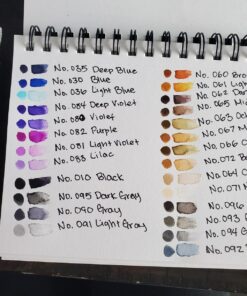 No. 035 Deep Blue
No. 030 Blue
No. 036 Light Blue
No. 084 Deep Violet
No. 080 Violet
No. 082 Purple
No. 081 Light Violet
No. 083 Lilac
No. 010 Black
No. 095 Dark Grey
No. 090 Gray
No. 091 Light Gray
No. 060 Bro
No. 061 Ligh
No. 062 Dar
No. 065 Mi
No. 063 Och
No. 067 
No. 066 O
No. 072 B
No. 064 
No. 071
No. 096
No. 093
No. 094 G
No. 092